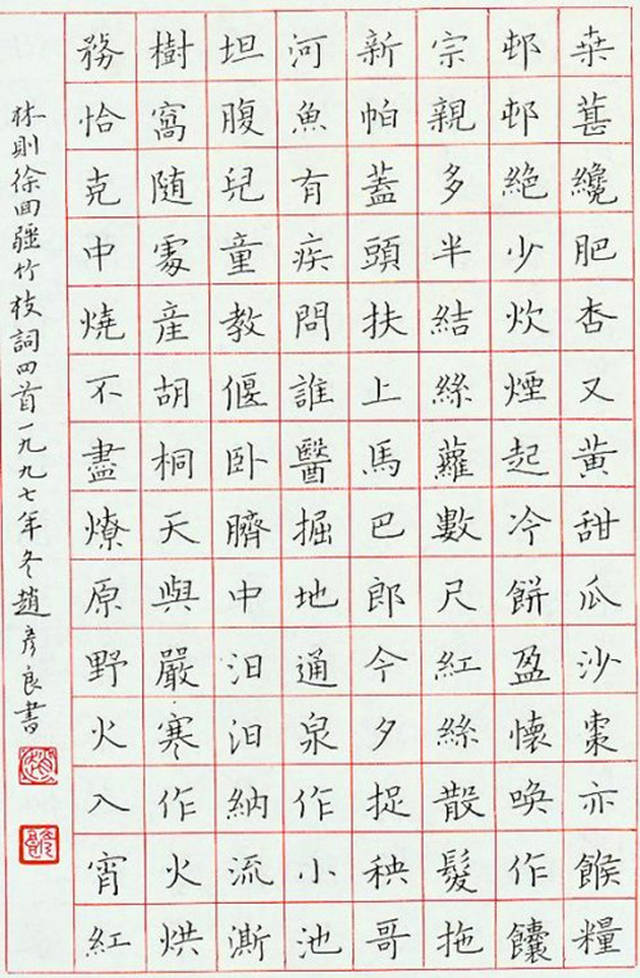 桒葚纔肥杏又黄甜瓜沙棗亦餱糧
邨邨絶少炊煙起冷餅盈懷喚作饢
宗親多半結絲蘿數尺紅絲散髮拖
新帕蓋頭扶上馬巴郎今夕捉秧哥
河魚有疾問誰醫掘地通泉作小池
坦腹兒童教偃卧臍中汩汩納流澌
樹窩随處産胡桐天與嚴寒作火烘
務恰克中燒不盡燎原野火入宵紅
林則徐回疆竹枝詞四首一九九七年冬趙彦良書